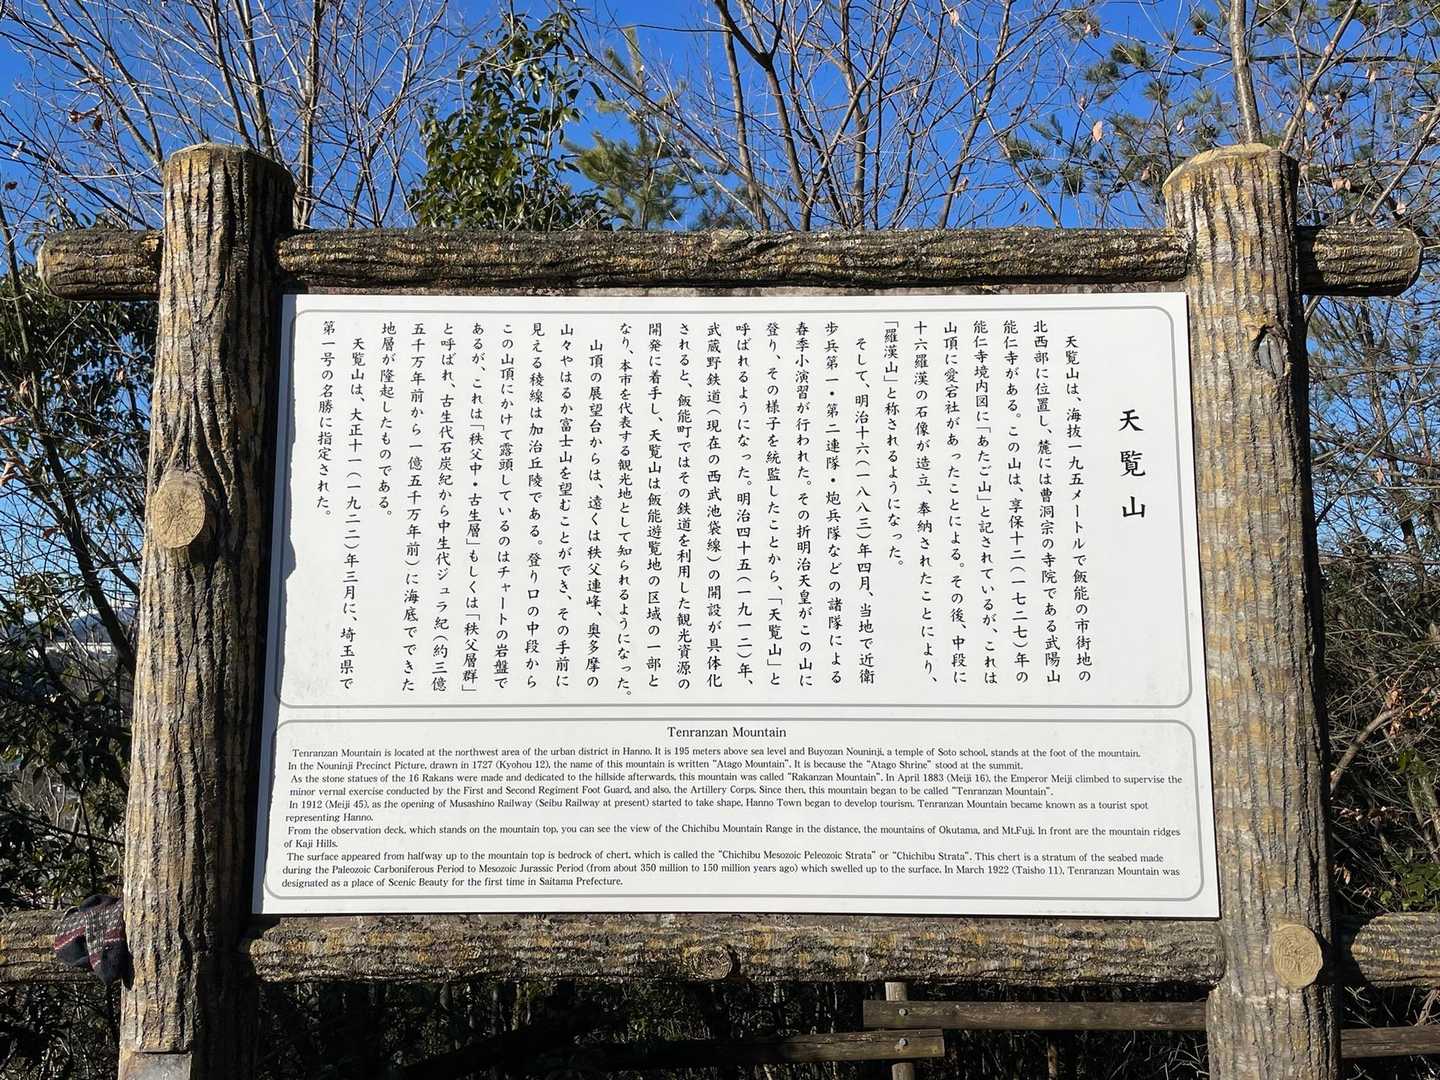 天覧山
天覧山は、海抜一九五メートルで飯能の市街地の
北西部に位置し、麓には曹洞宗の寺院である武陽山
能仁寺がある。この山は、享保十二(一七二七)年の
能仁寺境内図に「あたご山」と記されているが、これは
山頂に愛宕社があったことによる。その後、中段に
十六羅漢の石像が造立、奉納されたことにより、
「羅漢山」と称されるようになった。
そして、明治十六(一八八三)年四月、当地で近衛
歩兵第一・第二連隊・炮兵隊などの諸隊による
春季小演習が行われた。その折明治天皇がこの山に
登り、その様子を統監したことから、「天覧山」と
呼ばれるようになった。明治四十五(一九一二)年、
武蔵野鉄道(現在の西武池袋線)の開設が具体化
されると、飯能町ではその鉄道を利用した観光資源の
開発に着手し、天覧山は飯能遊覧地の区域の一部と
なり、本市を代表する観光地として知られるようになった。
山頂の展望台からは、遠くは秩父連峰、奥多摩の
山々やはるか富士山を望むことができ、その手前に
見える稜線は加治丘陵である。登り口の中段から
この山頂にかけて露頭しているのはチャートの岩盤で
あるが、これは「秩父中・古生層」もしくは「秩父層群」
と呼ばれ、古生代石炭紀から中生代ジュラ紀(約三億
五千万年前から一億五千万年前)に海底でできた
地層が隆起したものである。
天覧山は、大正十一(一九二二)年三月に、埼玉県で
第一号の名勝に指定された。
Tenranzan Mountain
Tenranzan Mountain is located at the northwest area of the urban district in Hanno. It is 195 meters above sea level and Buyozan Nouninji, a temple of Soto school, stands at the foot of the mountain.
In the Nouninji Precinct Picture, drawn in 1727 (Kyohou 12), the name of this mountain is written "Atago Mountain". It is because the "Atago Shrine" stood at the summit.
As the stone statues of the 16 Rakans were made and dedicated to the hillside afterwards, this mountain was called "Rakanzan Mountain". In April 1883 (Meiji 16), the Emperor Meiji climbed to supervise the
minor vernal exercise conducted by the First and Second Regiment Foot Guard, and also, the Artillery Corps. Since then, this mountain began to be called "Tenranzan Mountain".
In 1912 (Meiji 45), as the opening of Musashino Railway (Seibu Railway at present) started to take shape, Hanno Town began to develop tourism. Tenranzan Mountain became known as a tourist spot
representing Hanno.
From the observation deck, which stands on the mountain top, you can see the view of the Chichibu Mountain Range in the distance, the mountains of Okutama, and Mt.Fuji. In front are the mountain ridges
of Kaji Hills.
The surface appeared from halfway up to the mountain top is bedrock of chert, which is called the "Chichibu Mesozoic Peleozoic Strata" or "Chichibu Strata". This chert is a stratum of the seabed made
during the Paleozoic Carboniferous Period to Mesozoic Jurassic Period (from about 350 million to 150 million years ago) which swelled up to the surface. In March 1922 (Taisho 11), Tenranzan Mountain was
designated as a place of Scenic Beauty for the first time in Saitama Prefecture.